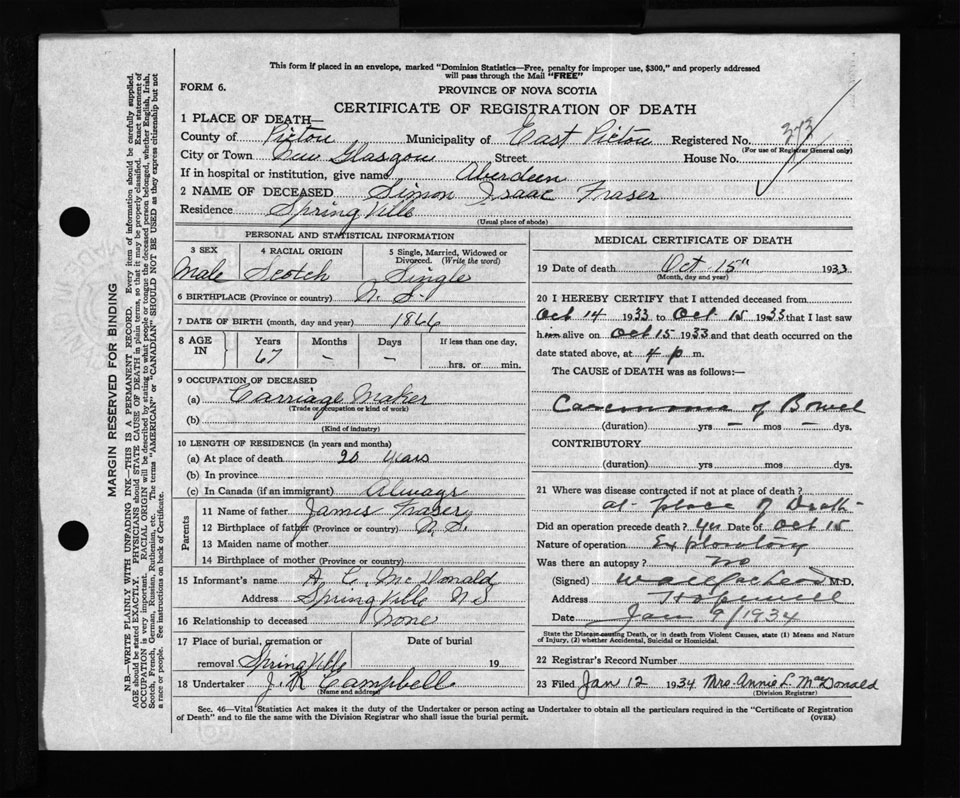 This form if placed in an envelope, marked "Dominion Statistics—Free, penalty for improper use, $300," and properly addressed
will pass through the Mail "FREE"
FORM 6.
PROVINCE OF NOVA SCOTIA
CERTIFICATE OF REGISTRATION OF DEATH
1 PLACE OF DEATH—
County of Pictou Municipality of East Pictou Registered No.
(For use of Registrar General only)
City or Town New Glasgow Street House No.
If in hospital or institution, give name Aberdeen
2 NAME OF DECEASED Simon Isaac Fraser
Residence Springville
(Usual place of abode)
PERSONAL AND STATISTICAL INFORMATION
3 SEX
Male
4 RACIAL ORIGIN
Scotch
5 Single, Married, Widowed or
Divorced. (Write the word)
Single
6 BIRTHPLACE (Province or country) N.S.
7 DATE OF BIRTH (month, day and year) 1866
8 AGE IN
Years Months Days If less than one day,
67 – – hrs. or min.
9 OCCUPATION OF DECEASED
(a) Carriage Maker
(Trade or occupation or kind of work)
(b)
(Kind of industry)
10 LENGTH OF RESIDENCE (in years and months)
(a) At place of death 20 years
(b) In province
(c) In Canada (if an immigrant) Always
Parents
11 Name of father James Fraser
12 Birthplace of father (Province or country) N.S.
13 Maiden name of mother
14 Birthplace of mother (Province or country)
15 Informant's name A. C. McDonald
Address Springville NS
16 Relationship to deceased None
17 Place of burial, cremation or Date of burial
removal Springville 19
18 Undertaker J. R Campbell
(Name and address)
MEDICAL CERTIFICATE OF DEATH
19 Date of death Oct 15" 1933
(Month, day and year)
20 I HEREBY CERTIFY that I attended deceased from
Oct 14 1933 to Oct 15 1933 that I last saw
him alive on Oct 15 1933 and that death occurred on the
date stated above, at 4 p m.
The CAUSE of DEATH was as follows:—
Carcinoma of Bowel
(duration) yrs – mos – dys.
CONTRIBUTORY
(duration) yrs mos dys.
21 Where was disease contracted if not at place of death?
at place of Death
Did an operation precede death? Yes Date of Oct 15
Nature of operation Exploratory
Was there an autopsy? no
(Signed) M.D.
Address Hopewell
Date Jan 9/1934
State the Disease causing Death, or in death from Violent Causes, state (1) Means and Nature
of Injury, (2) whether Accidental, Suicidal or Homicidal.
22 Registrar's Record Number
23 Filed Jan 12 1934 Mrs. Annie L. MacDonald
(Division Registrar)
Sec. 46—Vital Statistics Act makes it the duty of the Undertaker or person acting as Undertaker to obtain all the particulars required in the "Certificate of Registration
of Death" and to file the same with the Division Registrar who shall issue the burial permit. (OVER)
MARGIN RESERVED FOR BINDING
N.B.—WRITE PLAINLY WITH UNFADING INK—THIS IS A PERMANENT RECORD. Every item of information should be carefully supplied.
AGE should be stated EXACTLY. PHYSICIANS should STATE CAUSE OF DEATH in plain terms, so that it may be properly classified. Exact statement of
OCCUPATION is very important. RACIAL ORIGIN will be described by stating to what people or tongue the deceased person belonged, whether English, Irish,
Scotch, French, German, Russian, Ruthenian, etc. The terms "AMERICAN" or "CANADIAN" SHOULD NOT BE USED as they express citizenship but not
a race or people. See instructions on back of Certificate.